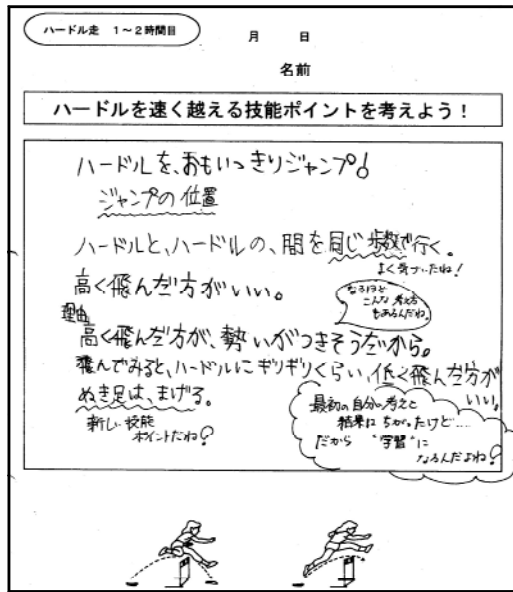 ハードル走 1～2時間目
月 日
名前
ハードルを速く越える技能ポイントを考えよう！
ハードルを、おもいっきりジャンプ!
ジャンプの位置
ハードルと、ハードルの、間を同じ歩数で行く。
よく気づいたね！
高く飛んだ方がいい。
なるほど
こんな考え方
もあるんだね。
理由
高く飛んだ方が、勢いがつきそうだから。
飛んでみると、ハードルにギリギリくらい、低く飛んだ方が
いい。
ぬき足は、まげる。
新しい技能
ポイントだね!
最初の自分の考えと
結果はちがったけど……
だから "学習"に
なるんだよね!